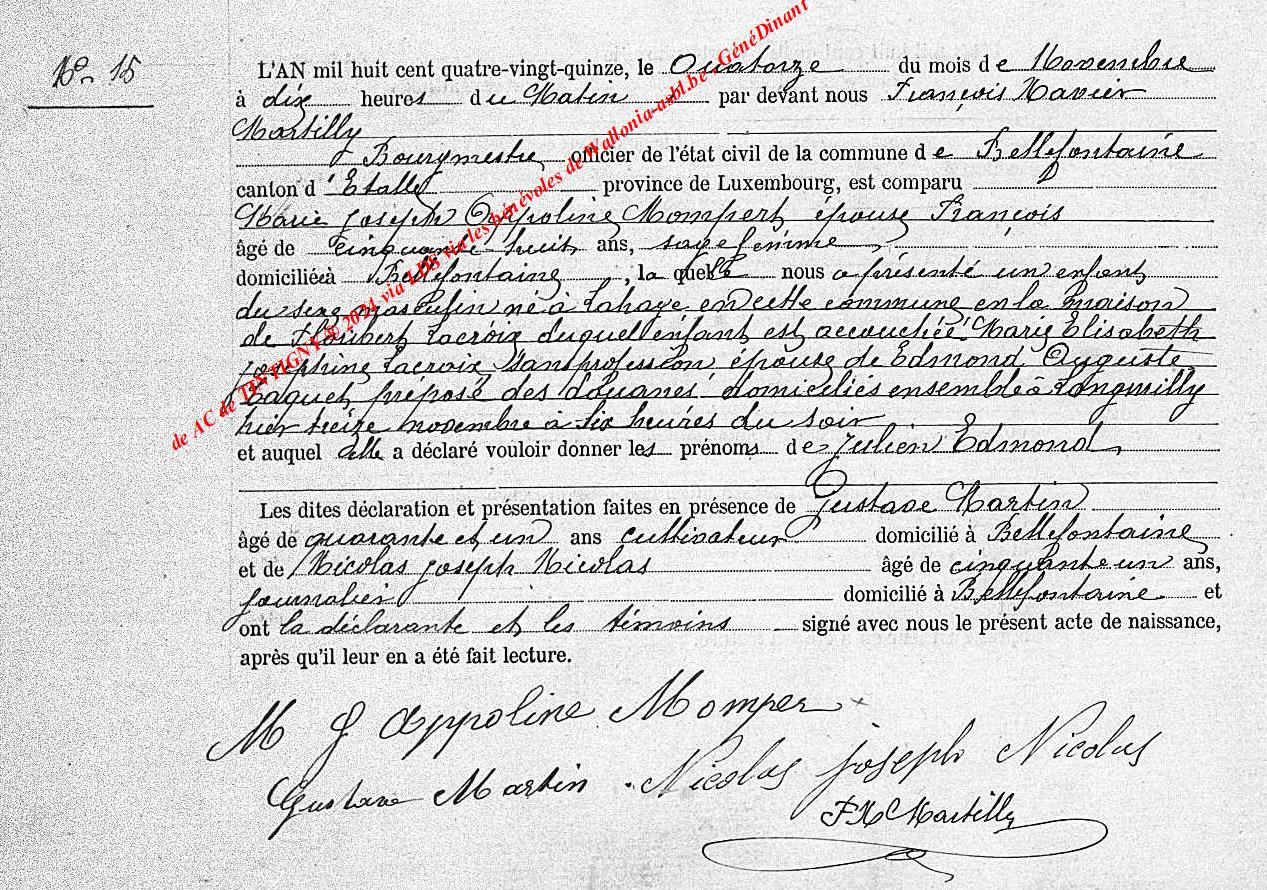 No 15
L'AN mil huit cent quatre-vingt-quinze, le Quatorze du mois de Novembre
à dix heures du Matin par devant nous François Xavier
Martilly
Bourgmestre officier de l'état civil de la commune de Bellefontaine
canton d'Etalle province de Luxembourg, est comparu
Marie Joseph Appoline Mompert, épouse François
âgé de cinquante huit ans, sage femme
domiciliée à Bellefontaine, la quelle nous a présenté un enfant
du sexe masculin né à Lahage en cette commune en la maison
de Floribert Lacroix duquel enfant est accouchée Marie Elisabeth
Joséphine Lacroix, sans profession épouse de Edmond Auguste
Baquet, préposé des douanes domiciliés ensemble à Longwilly
hier treize novembre à six heures du soir
et auquel elle a déclaré vouloir donner les prénoms de Julien Edmond,
Les dites déclaration et présentation faites en présence de Gustave Martin
âgé de quarante et un ans cultivateur domicilié à Bellefontaine
et de Nicolas Joseph Nicolas âgé de cinquante un ans,
journalier domicilié à Bellefontaine et
ont la déclarante et les témoins signé avec nous le présent acte de naissance,
après qu'il leur en a été fait lecture.
M J Appoline Momper
Gustave Martin . Nicolas Joseph Nicolas
F X Martilly
de AC de TINTIGNY © 2024 via LDS via les bénévoles de Wallonia-asbl.be - GénéDinant